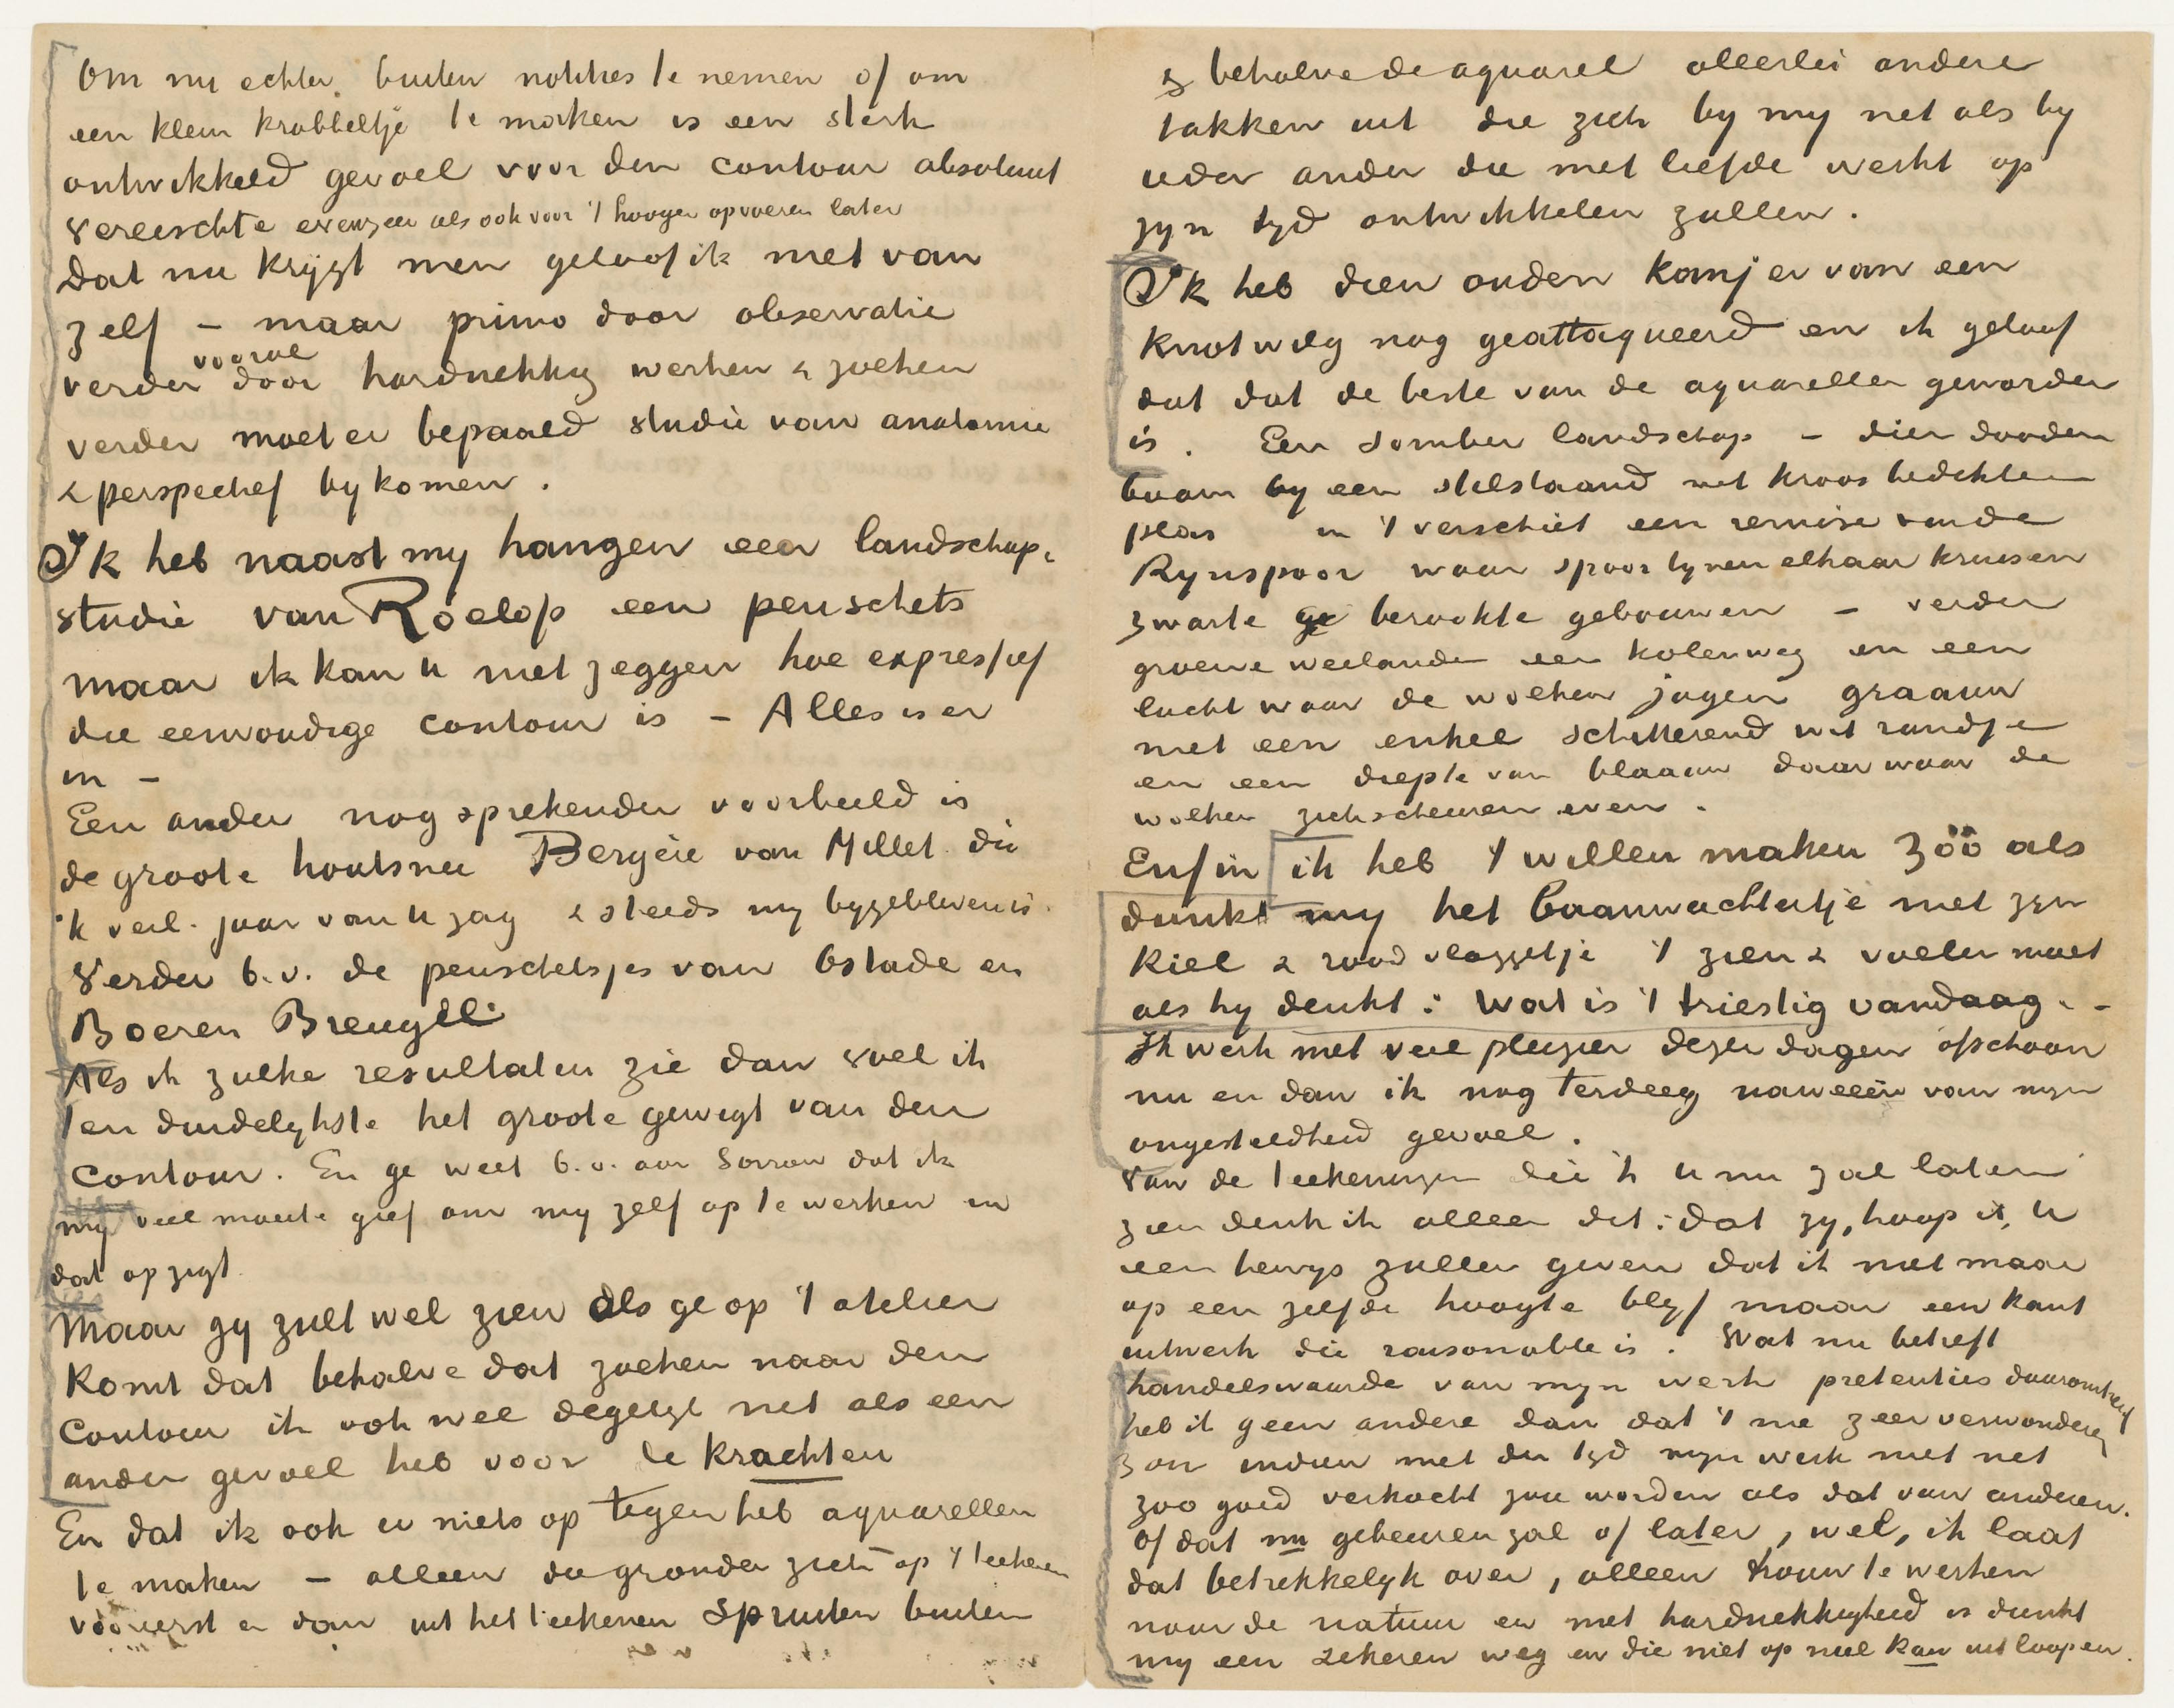 Om nu echter buiten notities te nemen of om
een klein krabbeltje te maken is een sterk
ontwikkeld gevoel voor den contour absoluut
vereischte evenzeer als ook voor 't hooger opvoeren later
Dat nu krijgt men geloof ik niet van
zelf – maar primo door observatie
verder vooral door hardnekkig werken & zoeken
verder moet er bepaald studie van anatomie
& perspectief bykomen.
Ik heb naast my hangen een landschap-
studie van Roelofs een penschets
maar ik kan u niet zeggen hoe expressief
die eenvoudige contour is – Alles is er
in –
Een ander nog sprekender voorbeeld is
de groote houtsnee Bergère van Millet die
'k verl. jaar van u zag & steeds my bygebleven is.
Verder b.v. de penschetsjes van Ostade en
Boeren Breugel.
Als ik zulke resultaten zie dan voel ik
ten duidelykste het groote gewigt van den
contour. En ge weet b.v. aan Sorrow dat ik
my veel moeite geef om my zelf op te werken in
dat opzigt.
Maar gy zult wel zien als ge op 't atelier
komt dat behalve dat zoeken naar den
contour ik ook wel degelyk net als een
ander gevoel heb voor de krachten
En dat ik ook er niets op tegen heb aquarellen
te maken – alleen die gronden zich op 't teekenen
vooreerst en dan uit het teekenen spruiten buiten
& behalve de aquarel allerlei andere
takken uit die zich by my net als by
ieder ander die met liefde werkt op
zyn tyd ontwikkelen zullen.
Ik heb dien ouden kanjer van een
knotwilg nog geattaqueerd en ik geloof
dat dat de beste van de aquarellen geworden
is. Een somber landschap – dien dooden
boom by een stilstaand met kroos bedekten
plas in 't verschiet een remise van de
Rynspoor waar spoorlynen elkaar kruisen
zwarte ge berookte gebouwen – verder
groene weilanden een kolenweg en een
lucht waar de wolken jagen graauw
met een enkel schitterend wit randje
en een diepte van blaauw daar waar de
wolken zich scheuren even.
Enfin ik heb 't willen maken zóó als
dunkt my het baanwachtertje met zyn
kiel & rood vlaggetje 't zien & voelen moet
als hy denkt: wat is 't triestig vandaag. –
Ik werk met veel pleizier dezer dagen ofschoon
nu en dan ik nog terdeeg naweeën van myn
ongesteldheid gevoel.
Van de teekeningen die 'k u nu zal laten
zien denk ik alleen dit: dat zy, hoop ik, u
een bewys zullen geven dat ik niet maar
op een zelfde hoogte blyf maar een kant
uitwerk die raisonnable is. Wat nu betreft
handelswaarde van myn werk pretenties daaromtrent
heb ik geen andere dan dat 't me zeer verwonderen
zou indien met der tyd myn werk niet net
zoo goed verkocht zou worden als dat van anderen.
of dat nu gebeuren zal of later, wel, ik laat
dat betrekkelyk over, alleen trouw te werken
naar de natuur en met hardnekkigheid is dunkt
my een zekeren weg en die niet op niel kan uitloopen.